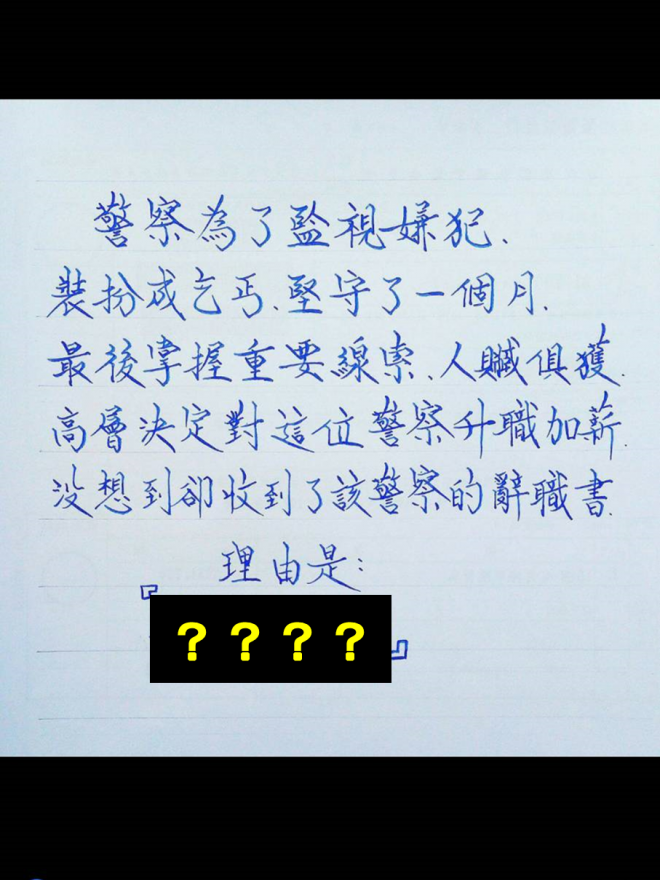 警察為了監視嫌犯、
裝扮成乞丐、堅守了一個月、
最後掌握重要線索、人贓俱獲、
高層決定對這位警察升職加薪、
沒想到卻收到了該警察的辭職書、
理由是：
『？？？？』